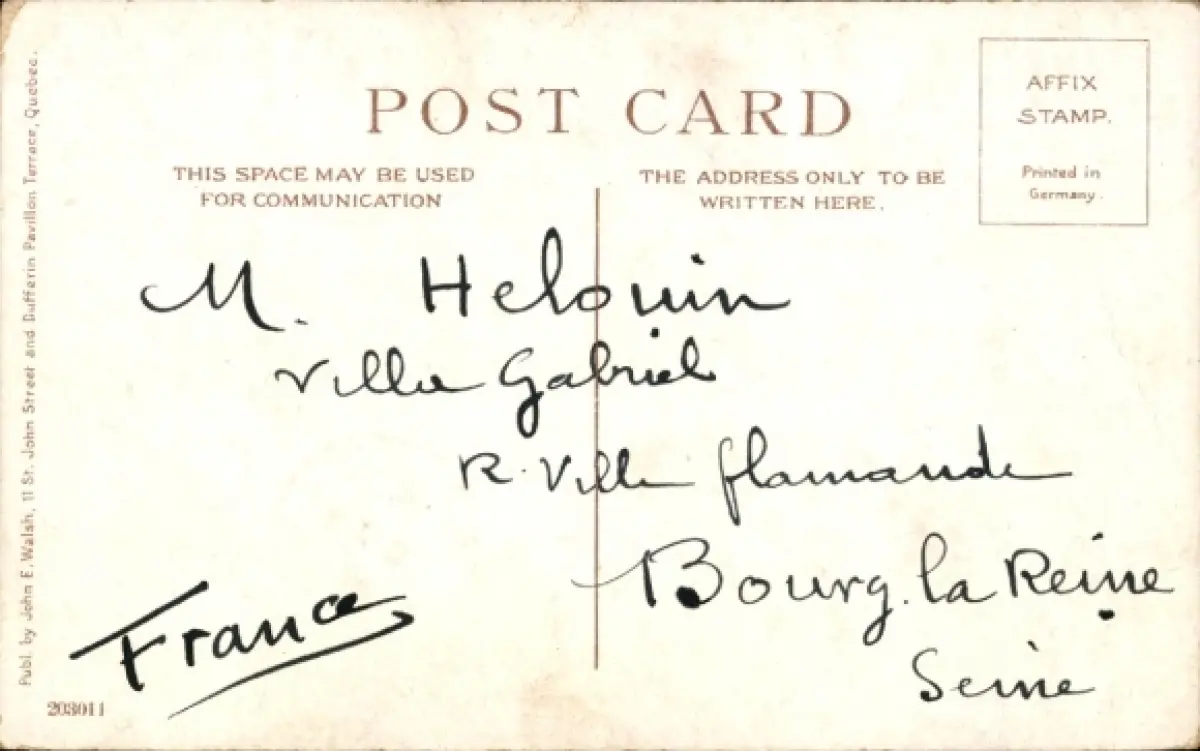 POST CARD
THIS SPACE MAY BE USED
FOR COMMUNICATION
THE ADDRESS ONLY TO BE
WRITTEN HERE.
AFFIX
STAMP.
Printed in
Germany.
M. Helouin
Villa Gabriel
R. Ville flamande
Bourg. la Reine
Seine
France
Publ. by John E. Walsh, 11 St. John Street and Dufferin Pavillon Terrace, Quebec.
203011